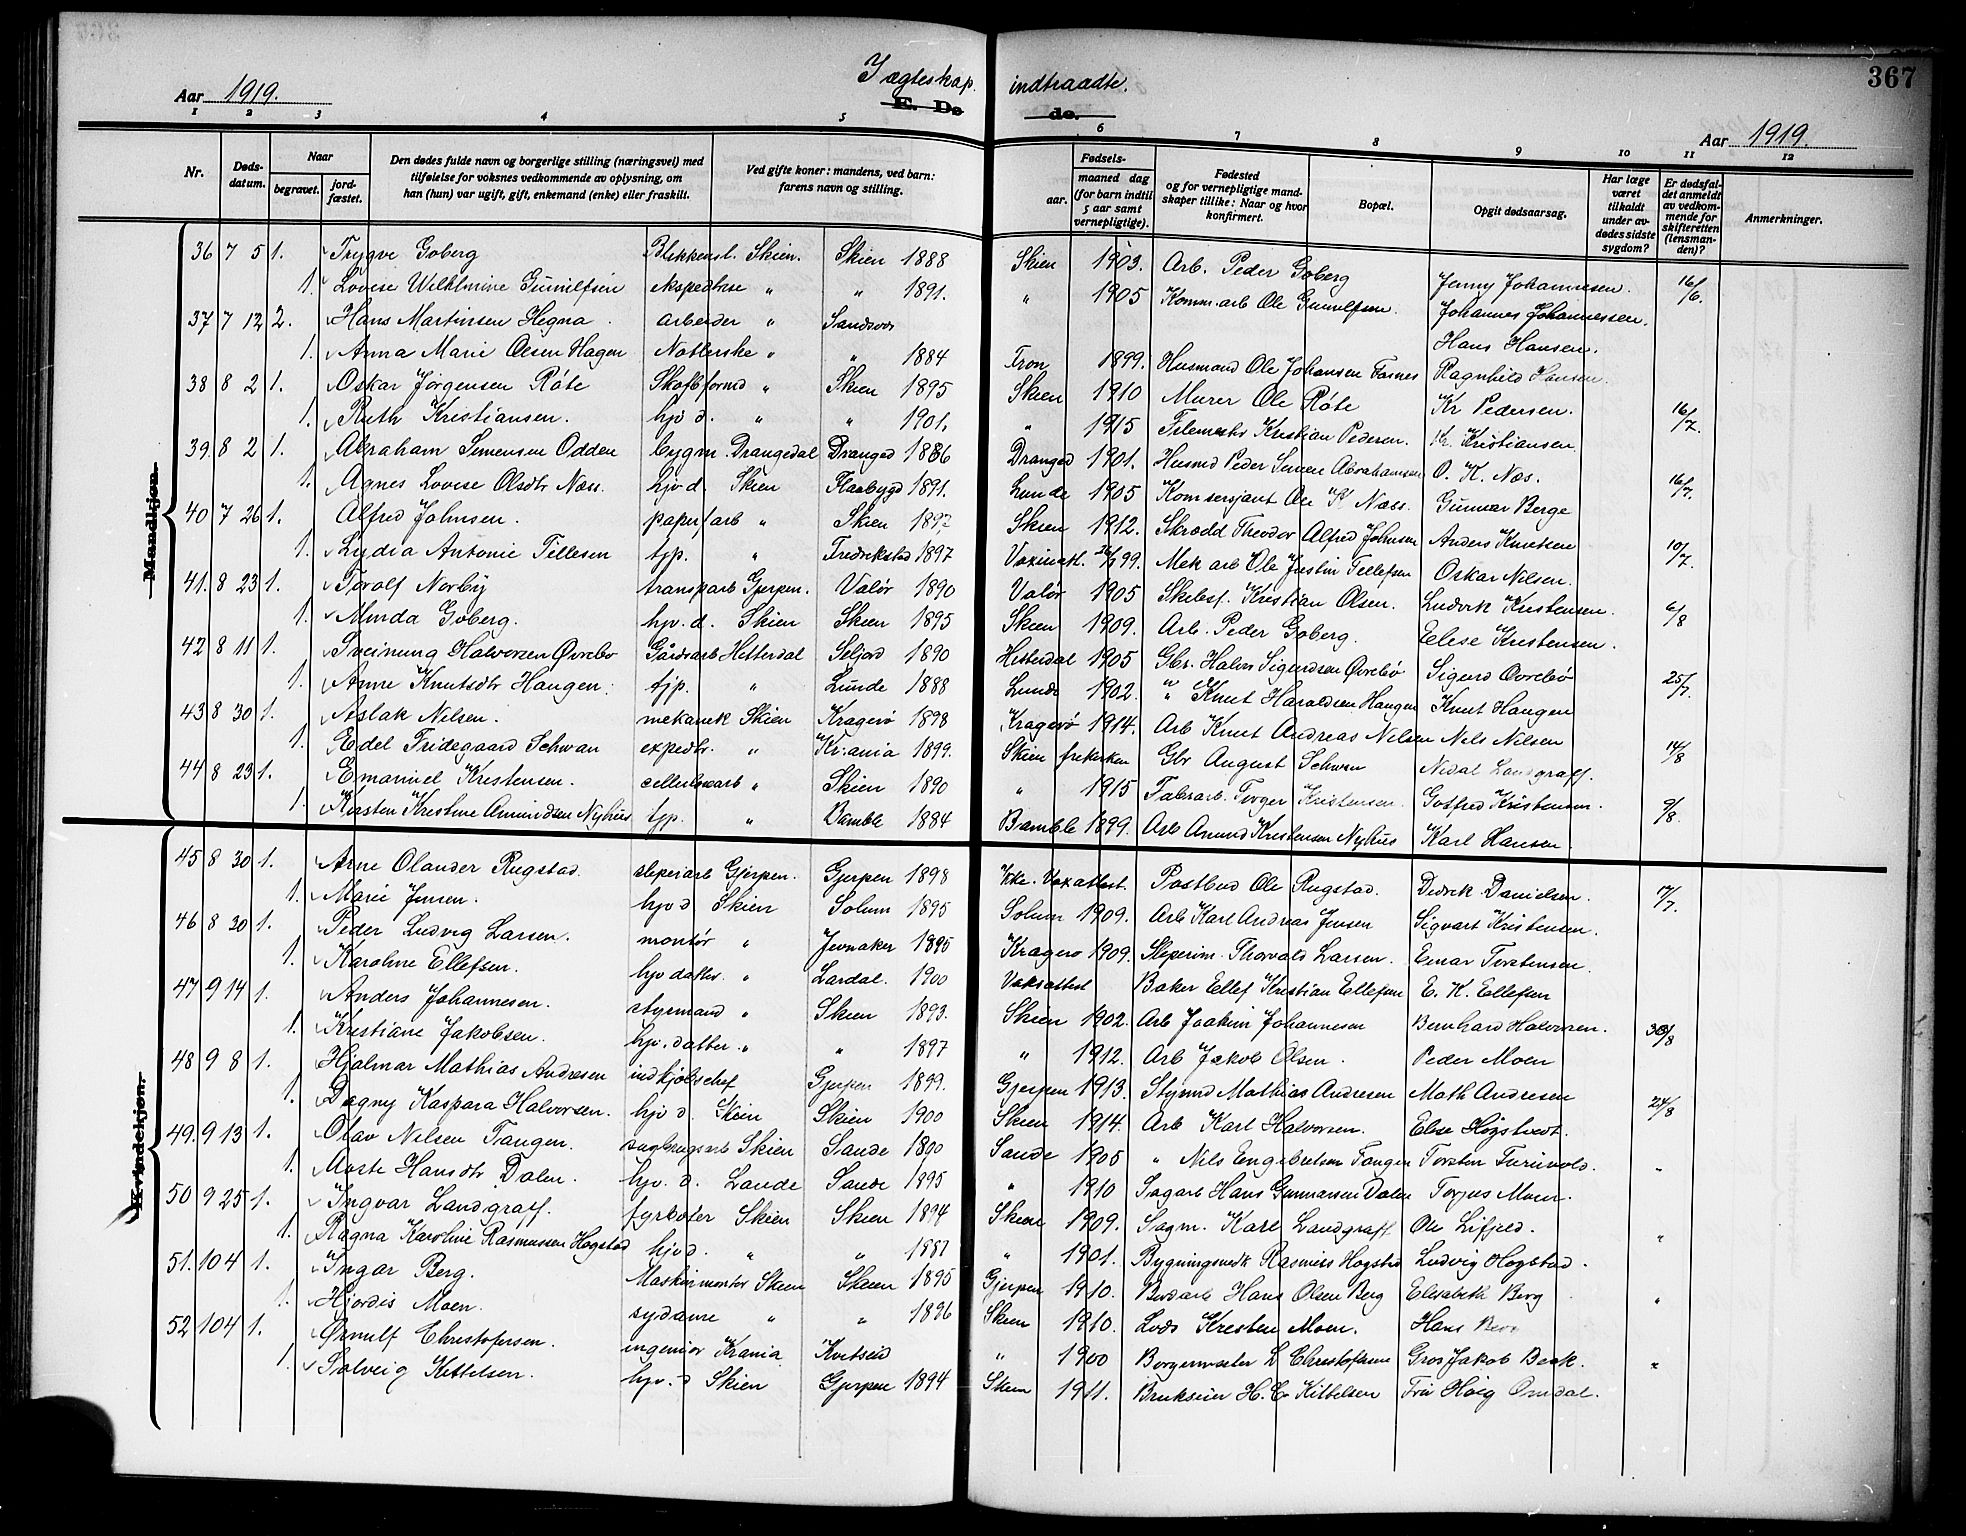 367
I ægteskap indtraadte.
Aar 1919. E. De de. Aar 1919.
1 2 3 4 5 6 7 8 9 10 11 12
Nr. Døds-datum. Naar begravet. jord-fæstet. Den dødes fulde navn og borgerlige stilling (næringsvei) med tilføielse for voksnes vedkommende av oplysning, om han (hun) var ugift, gift, enkemand (enke) eller fraskilt. Ved gifte koner: mandens, ved barn: farens navn og stilling. Fødsels- aar. maaned dag (for barn indtil 5 aar samt vernepligtige). Fødested og for vernepligtige mandskaper tillike: Naar og hvor konfirmert. Bopæl. Opgit dødsaarsag. Har læge været tilkaldt under avdødes sidste sygdom? Er dødsfaldet anmeldt av vedkommende for skifteretten (lensmanden)? Anmerkninger.
Mandkjøn.
36 7 5 1. Trygve Goberg Blikkensl. Skien. Skien 1888 Skien 1903. Arb. Peder Goberg Jenny Johannesen. 16/6.
1. Lovise Wilhelmine Gunulfsen ekspeditrise " " 1891. " 1905 Komm.arb Ole Gunulfsen. Johannes Johannessen.
37 7 12 2. Hans Martinsen Hegna. arbeider " Hans Hansen.
1. Anna Marie Olsen Hagen " " 1884 1899. Husmand Ole Johansen Ragnhild Hansen.
38 8 2 1. Oskar Jørgensen Røte " Skien 1895 Skien 1910 Murer Ole Røte Kr Pedersen. 16/7.
1. Ruth Kristiansen. hjv d. " " 1901. " 1915 Kristian Pedersen. Kr. Kristiansen
39. 8 2 1. Abraham Simensen Odden bygm. Drangedal Drangd 1886 Drangd 1901. Husmd Peder Simen Abrahamsen O. K. Næs. 16/7.
1. Agnes Lovise Olsdtr Næss. hjv d. Skien Flaabygd 1891. Lunde 1905 Ole K Næss. Gunnar Berge
40 7 26 1. Alfred Johnsen. papirfarb " Skien 1892 Skien 1912. Skrædd Theodor Alfred Johnsen Anders Knutsen 10/7.
1. Lydia Antonie Tellesen tjp. " Fredrikstad 1897 Mek arb Ole Justin Tellefsen Oskar Nilsen.
41. 8 23 1. Torolf Norby transparb Gjerpen. Valør 1890 Valør 1905 Skibsf. Kristian Olsen. Ludvik Kristensen. 6/8
1. Minda Goberg. hjv. d. Skien Skien 1895 Skien 1909. Arb. Peder Goberg. Elise Kristensen.
42 8 11 1. Sveinung Halvorsen Øvrebø Gårdsarb Hitterdal Seljord 1890 Hitterdal 1905 Gbr. Halvor Sigurdsen Øvrebø Sigurd Øvrebø 25/7.
1. Anne Knutsdtr Haugen. tjp. " Lunde 1888 Lunde 1902. " Knut Haraldsen Haugen Knut Haugen
43 8 30 1. Aslak Nilsen. mekanik Skien Kragerø 1898 Kragerø 1914. Arb Knut Andreas Nilsen Nils Nilsen 14/8
1. Edel Fridegaard Schwan expedtr. " Kr.ania 1899. Skien frikirken Gbr August Schwan Nidal Landgraff.
44 8 23 1. Emanuel Kristensen. cellulosearb " Skien 1890 " 1915 Fabrarb. Torger Kristensen. Gotfred Kristensen. 9/8.
1. Kirsten Kristine Amundsen Nyhus tjp. " Bamble 1884 Bamble 1899. Arb Amund Kristensen Nyhus Karl Hansen.
Kvindekjøn.
45 8 30 1. Arne Olander Rugstad. sliperiarb Gjerpen. Gjerpen 1898 Ikke. Vaxattest. Postbud Ole Rugstad. Didrik Danielsen. 17/7.
1. Marie Jensen. hjv d Skien Solum 1895 Solum 1909. Arb Karl Andreas Jensen Sigvart Kristensen.
46 8 30 1. Peder Ludvig Larsen. montør " Jevnaker 1895 Kragerø 1909. Sliperim. Thorvald Larsen. Einar Torstensen.
1. Karoline Ellefsen. hjv datter. " Lardal. 1900 Vaksattest Baker Ellef Kristian Ellefsen E. K. Ellefsen
47 9 14 1. Anders Johannesen. styrmand " Skien 1893. Skien 1902. Arb Joakim Johannesen Bernhard Halvorsen. 30/8
1. Kristiane Jakobsen. hjv. datter. " " 1897 " 1912. Arb Jakob Olsen. Peder Moen
48 9 8 1. Hjalmar Mathias Andresen indkjøbschef Gjerpen 1899. Gjerpen 1913. Styrmd Mathias Andresen Math Andresen 24/8
1. Dagny Kaspara Halvorsen. hjv d. Skien Skien 1900 Skien 1914. Arb Karl Halvorsen. Elise Høgstvedt.
49. 9 13 1. Olav Nilsen Tangen. sagbrugsarb Skien Sande 1890 Sande 1905 " Nils Engebretsen Tangen Torsten Turivold. "
1. Marte Hansdtr Dalen. hjv. d. Sande 1895 " 1910 Sagarb Hans Gunnarsen Dalen Torjus Moen.
50 9 25 1. Ingvar Landgraff. fyrbøter Skien Skien 1894 Skien 1909. Sagm. Karl Landgraff Ole Lifjeld. "
1. Ragna Karoline Rasmussen Høgstad hjv d. " " 1887 " 1901. Bygningssnedk Rasmus Høgstad Ludvig Høgstad.
51. 10 4 1. Ingar Berg. Maskinmontør Skien Skien 1895 Gjerpen 1910. Hans Olsen Berg Elisabeth Berg "
1. Hjørdis Moen. sydame " " 1896 Skien 1910. Lods Kristen Moen. Hans Berg
52 10 4 1. Ørnulf Christofersen. ingeniør Krania. Kvitseid " 1900 Borgermester L Christofersen Gros Jakob Beck. "
1. Solveig Kittelsen. hjv. d Skien Gjerpen 1894 Skien 1911. Brukseier H. C. Kittelsen Frü Høig Omdal.